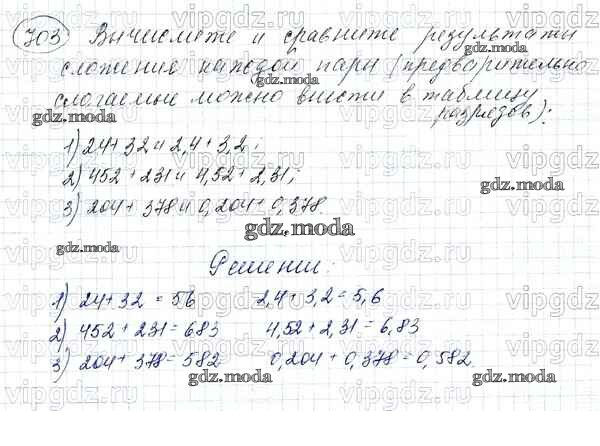 703 Вычислите и сравните результаты
сложения каждой пары (предварительно
слагаемые можно внести в таблицу
разрядов):
1) 24+32 и 2,4+3,2;
2) 452+231 и 4,52+2,31;
3) 204+378 и 0,204+0,378.
Решение:
1) 24+32=56 2,4+3,2=5,6
2) 452+231=683 4,52+2,31=6,83
3) 204+378=582 0,204+0,378=0,582.